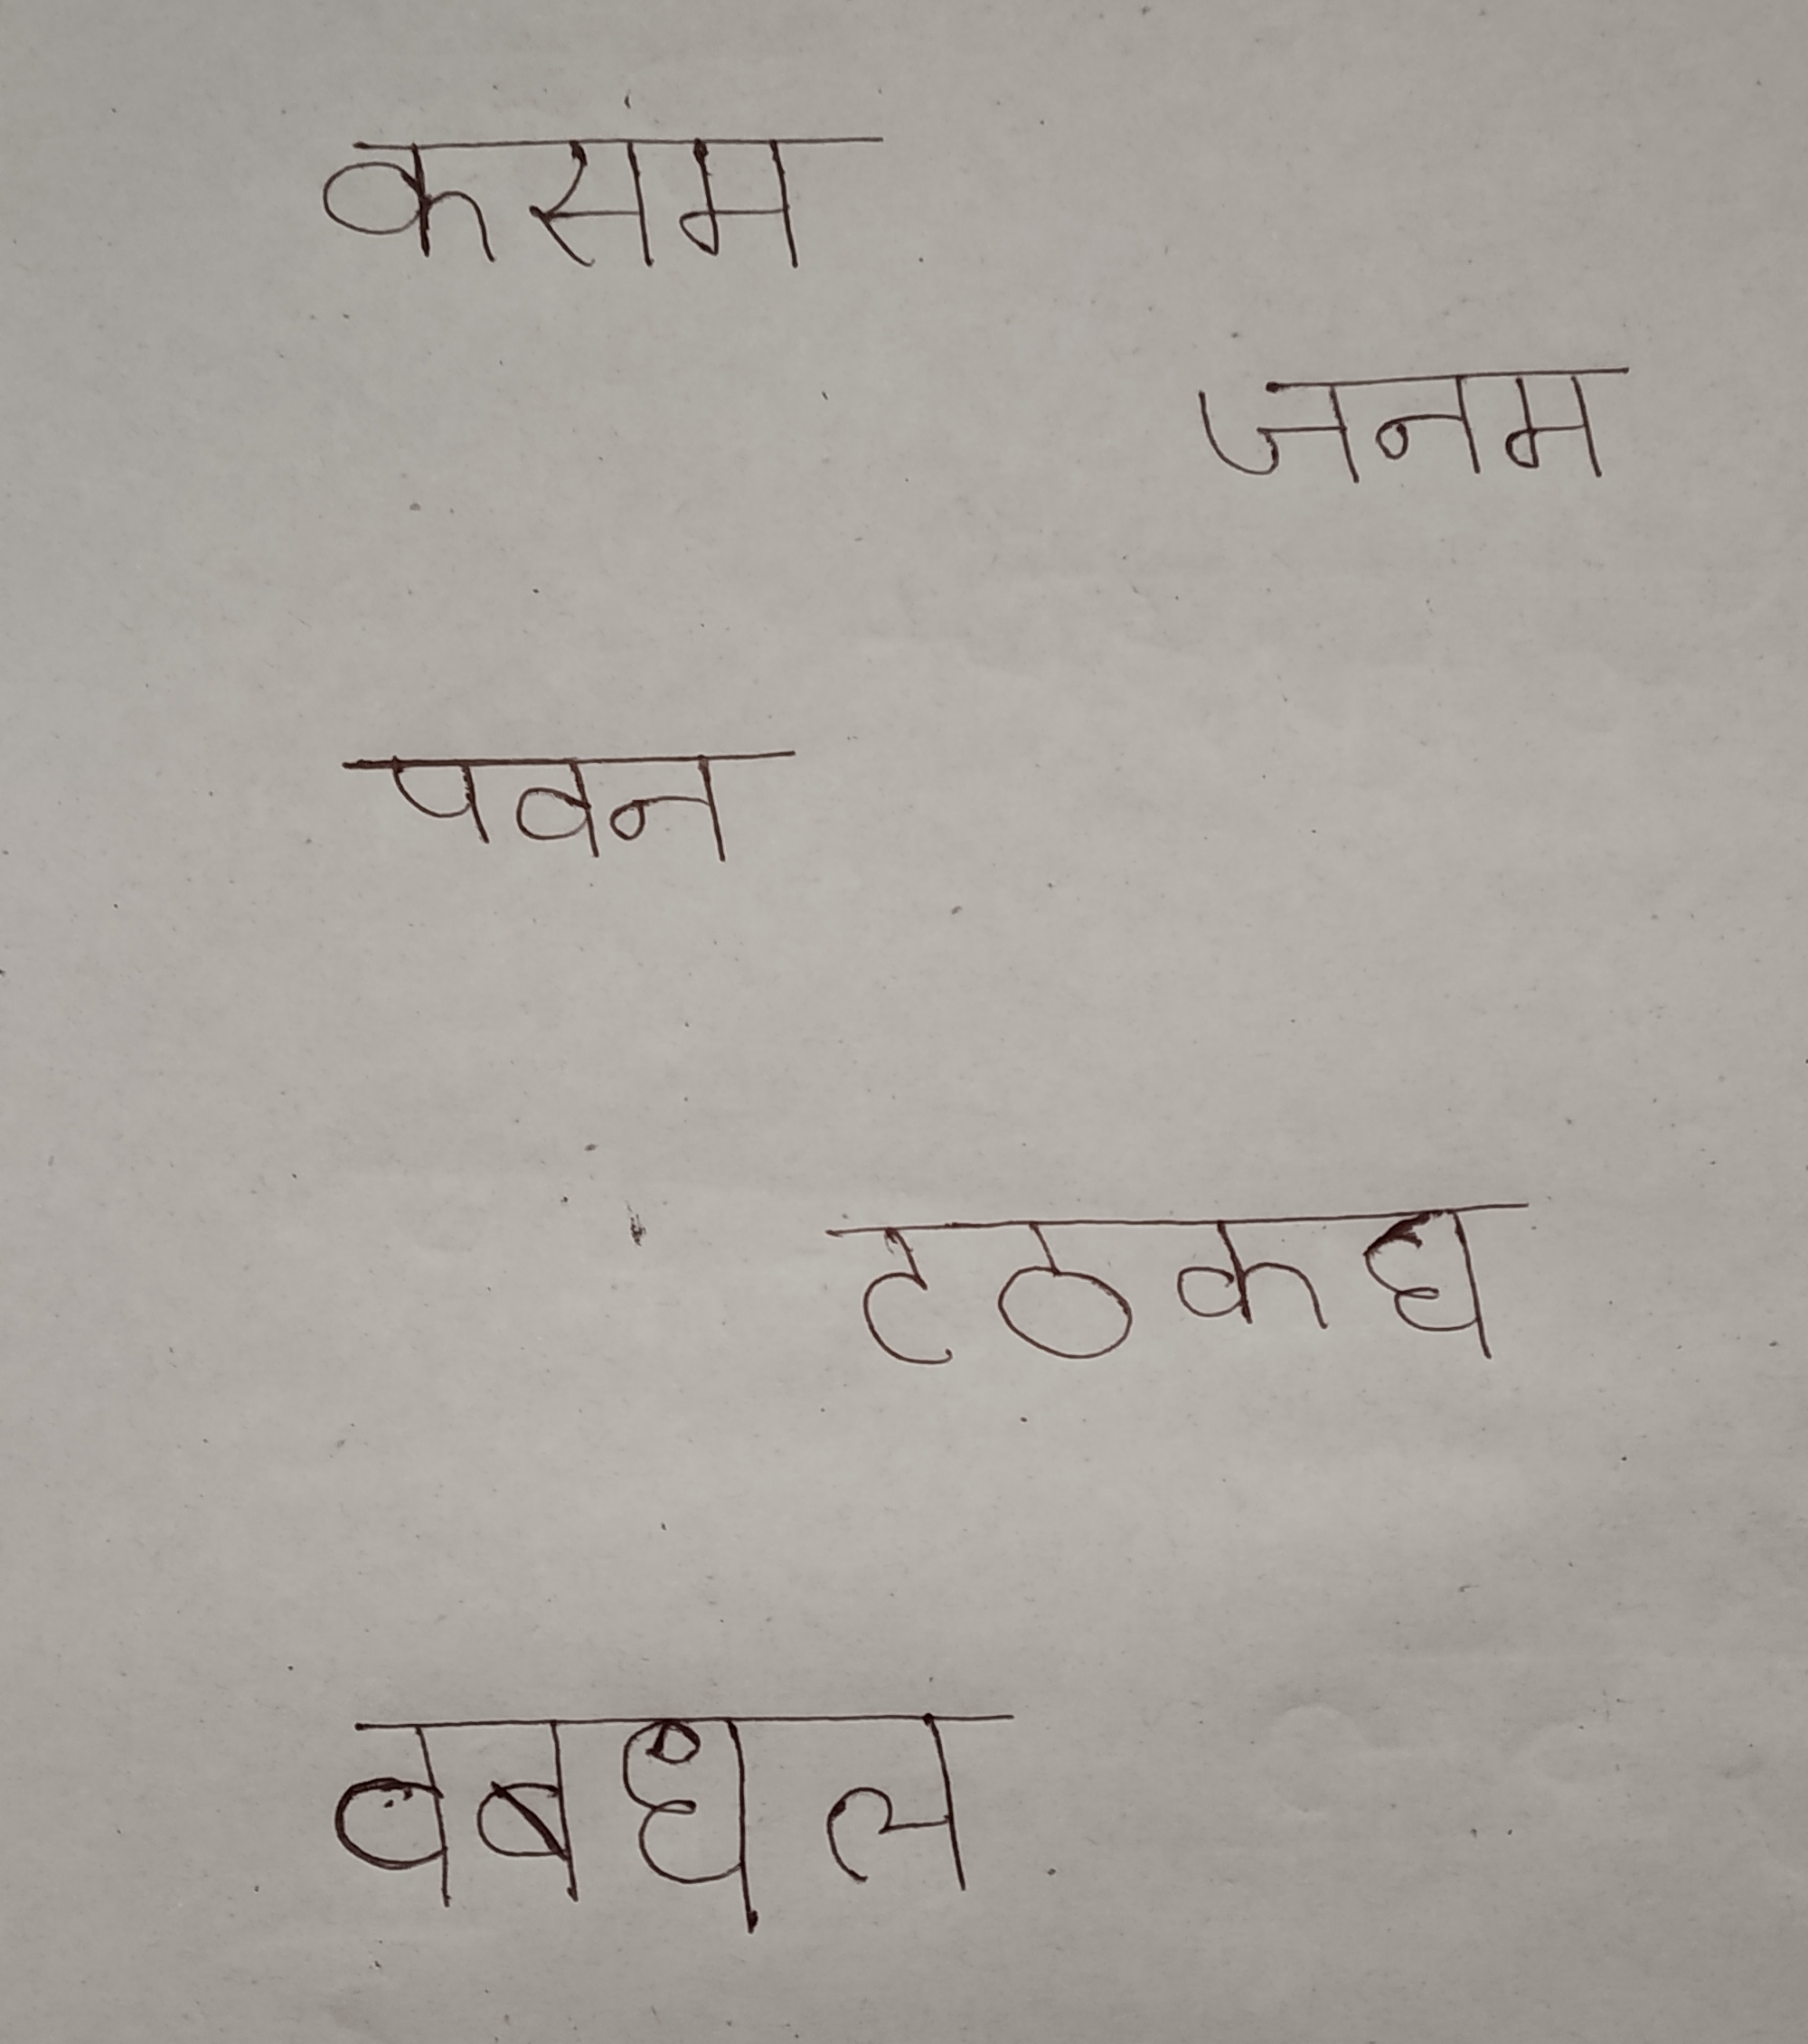 कसम
जनम
पवन
टठकध
वबधल